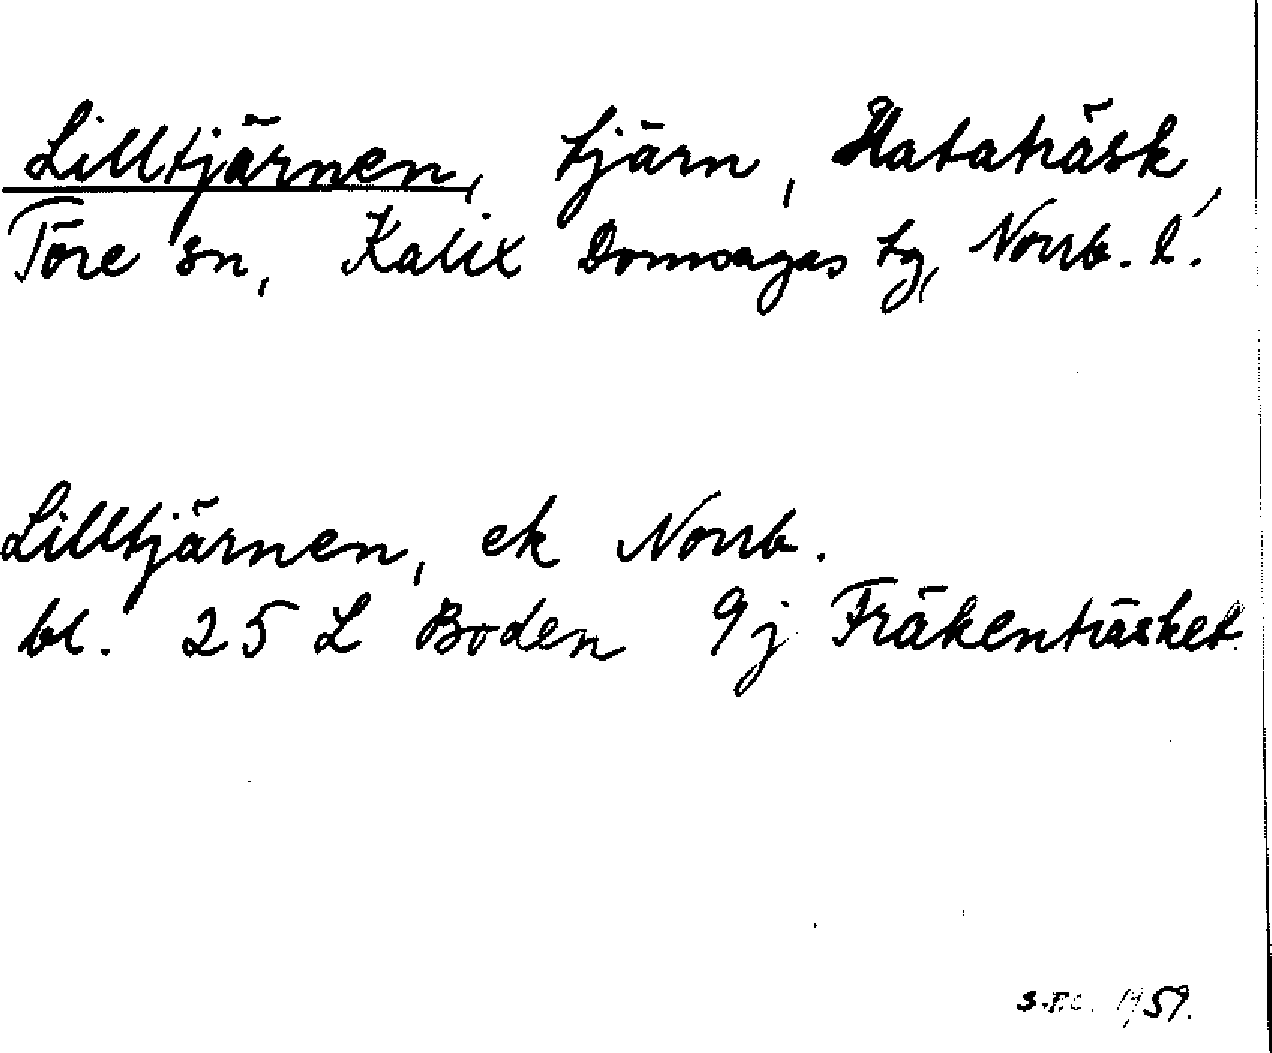 Lilltjärnen, tjärn, Hataträsk,
Töre sn, Kalix Domsagas tg, Norrb. l.
Lilltjärnen, ek Norrb.
bl. 25 L Boden 9j Fräkenträsket.
1959.